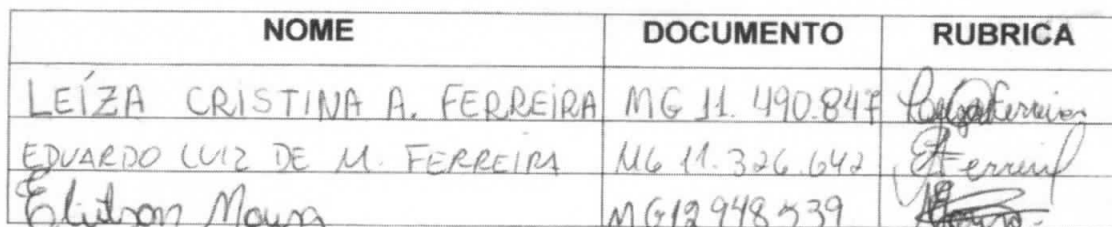 NOME DOCUMENTO RUBRICA
LEÍZA CRISTINA A. FERREIRA MG 11.490.847
EDUARDO LUIZ DE M. FERREIRA MG 11.326.642 Ferreira
Moura